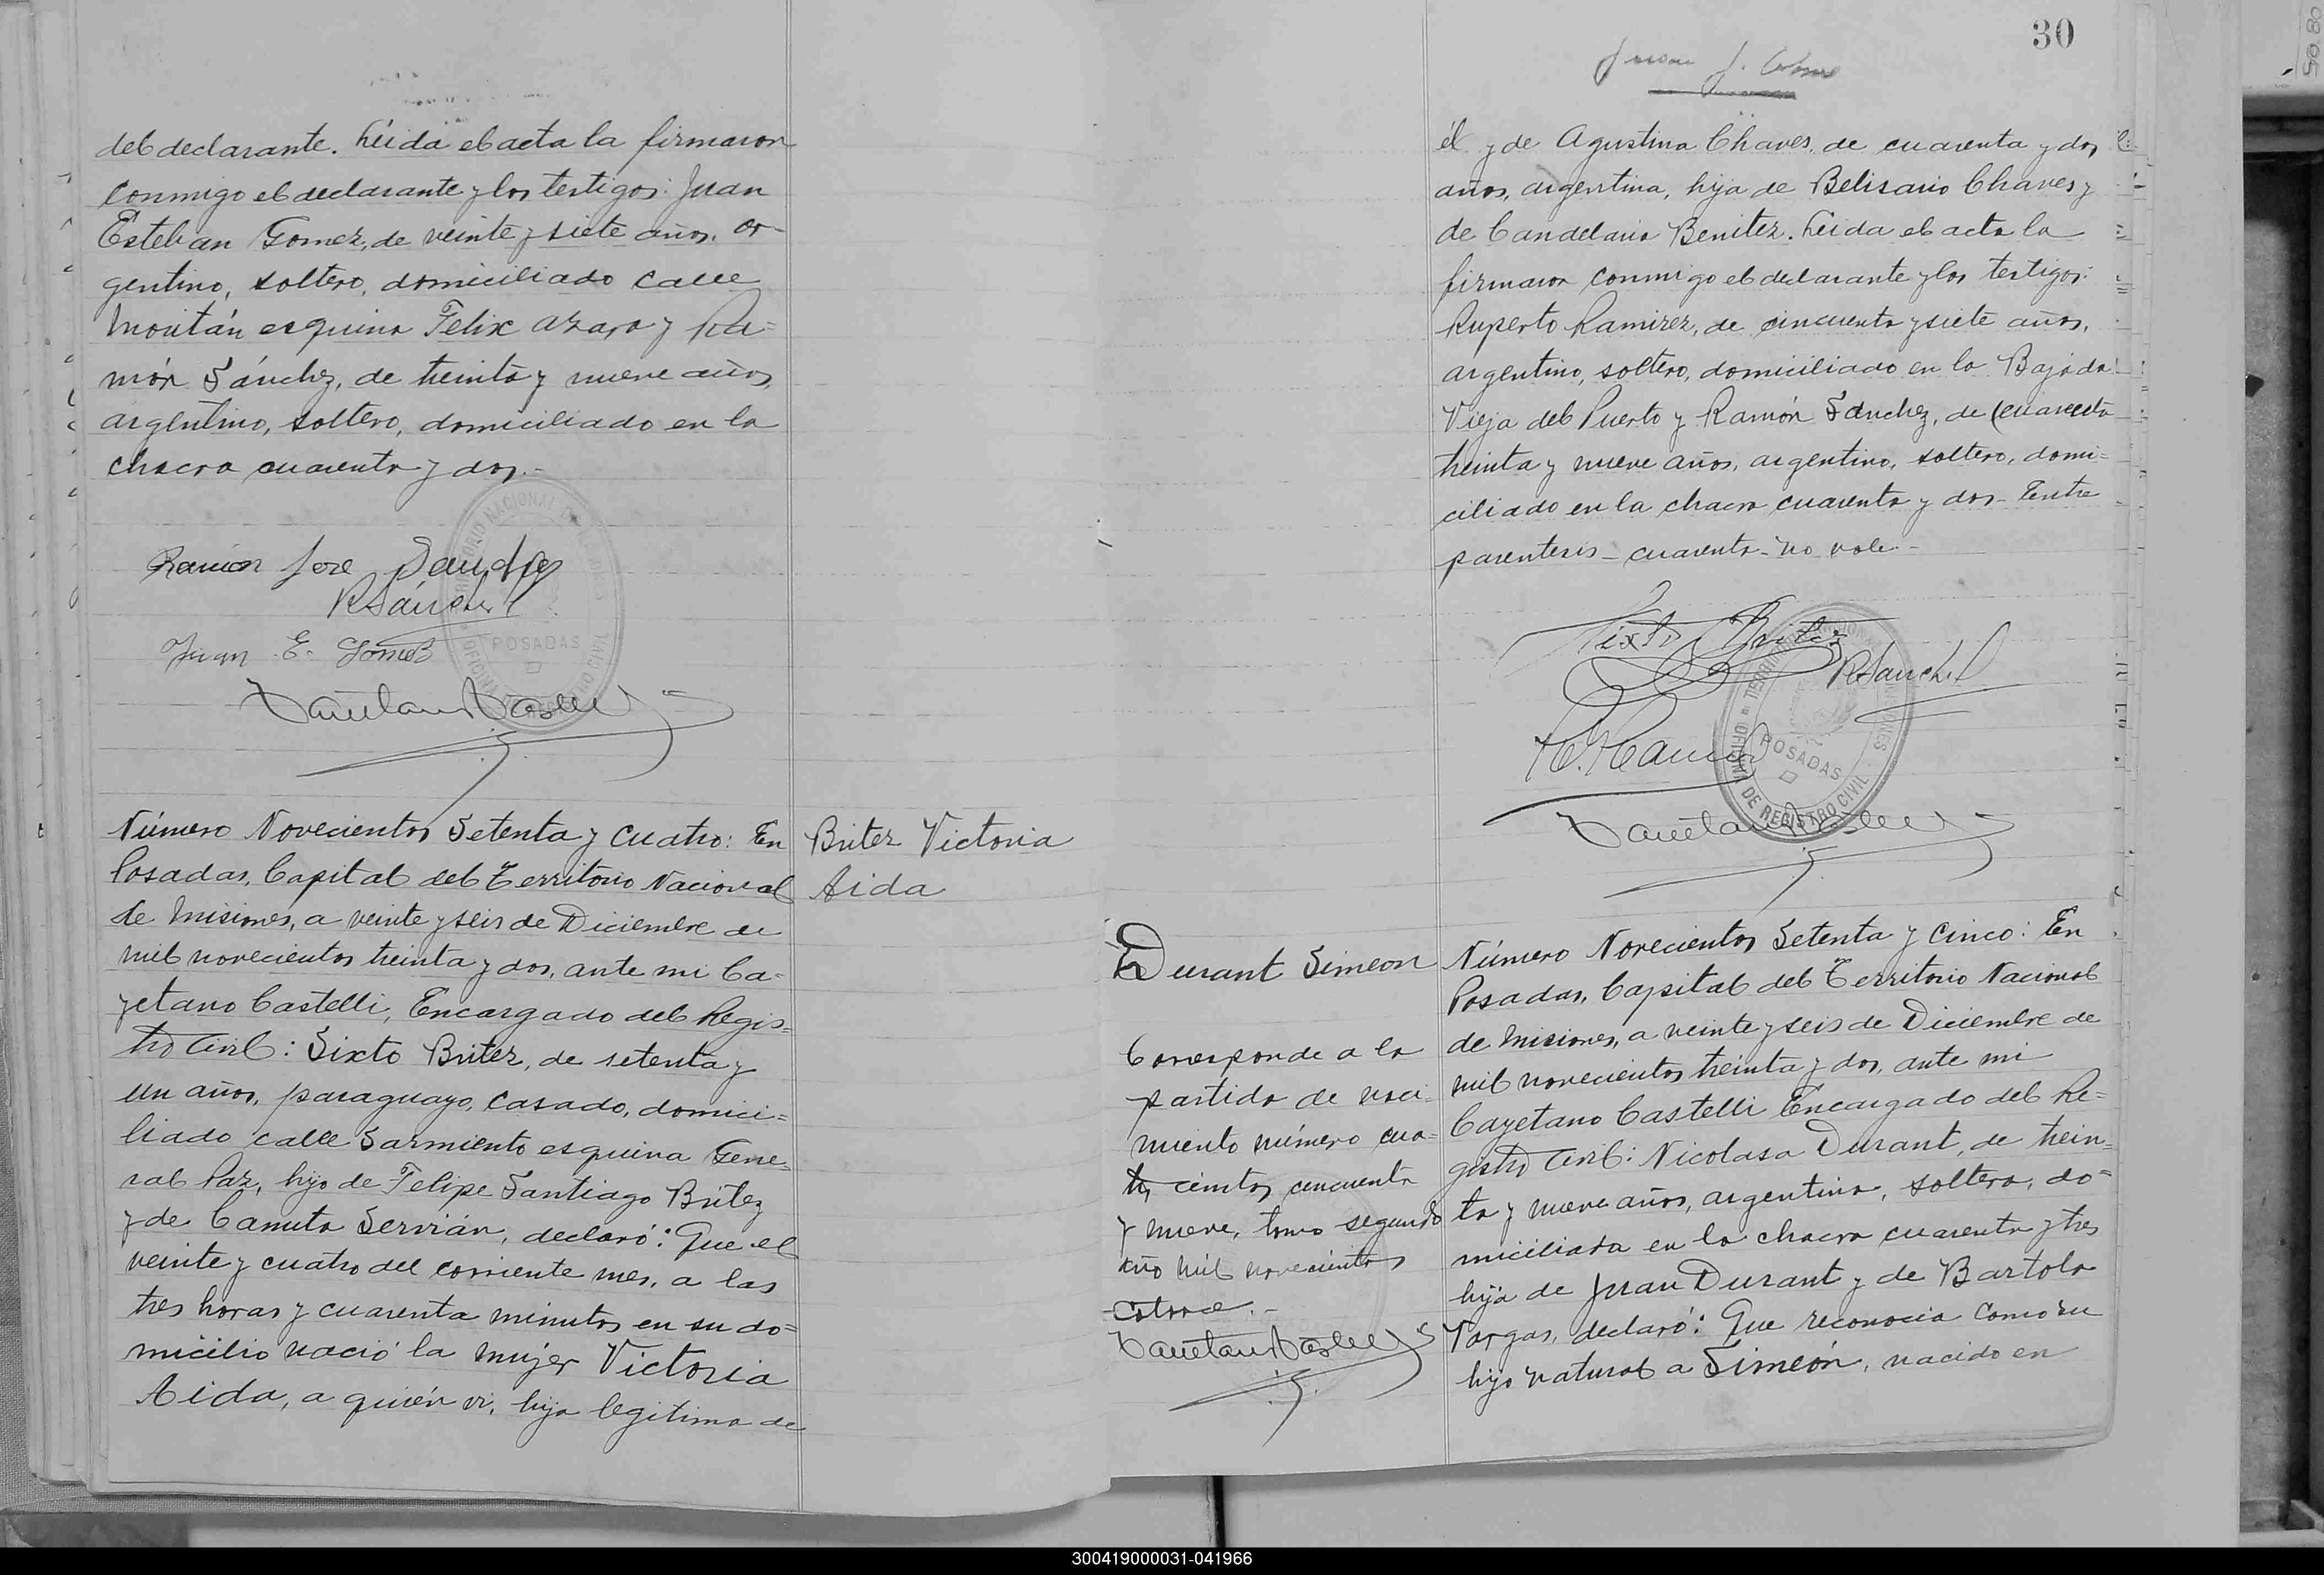 del declarante. Leída el acta la firmaron
conmigo el declarante y los testigos: Juan
Esteban Gomez, de veinte y siete años, ar-
gentino, soltero, domiciliado calle
Moritán esquina Felix Azara y Ra=
món Sánchez, de treinta y nueve años,
argentino, soltero, domiciliado en la
chacra cuarenta y dos.-
Ramón Jose
RSánchez
Juan E. Gomez
POSADAS
Número Novecientos Setenta y Cuatro: En
Posadas, Capital del Territorio Nacional
de Misiones, a veinte y seis de Diciembre de
mil novecientos treinta y dos, ante mi Ca-
yetano Castelli, Encargado del Regis=
tro Civil: Sixto Britez, de setenta y
un años, paraguayo, casado, domici=
liado calle Sarmiento esquina Gene=
ral Paz, hijo de Felipe Santiago Britez
y de Canuta Servián, declaró: Que el
veinte y cuatro del corriente mes, a las
tres horas y cuarenta minutos en su do=
micilio nació la mujer Victoria
Aida, a quién vi, hija legitima de
Britez Victoria
Aida
30
Juan J.
él y de Agustina Chaves, de cuarenta y dos
años, argentina, hija de Belisario Chaves y
de Candelaria Benitez. Leida el acta la
firmaron conmigo el declarante y los testigos:
Ruperto Ramirez, de cincuenta y siete años,
argentino, soltero, domiciliado en la Bajada
Vieja del Puerto y Ramón Sánchez, de (cuarenta
treinta y nueve años, argentino, soltero, domi=
ciliado en la chacra cuarenta y dos- Entre
parentesis - cuarenta - no vale-
Sixto Britez
RSanchez
R. Ramirez
OFICINA DE REGISTRO CIVIL
POSADAS
Durant Simeon
Corresponde a la
partida de naci-
miento número cua=
tro cientos cincuenta
y nueve, tomo segundo
año mil novecientos
catorce.-
Número Novecientos Setenta y Cinco: En
Posadas, Capital del Territorio Nacional
de Misiones, a veinte y seis de Diciembre de
mil novecientos treinta y dos, ante mi
Cayetano Castelli Encargado del Re=
gistro Civil: Nicolasa Durant, de trein=
ta y nueve años, argentina, soltera, do=
miciliada en la chacra cuarenta y tres
hija de Juan Durant y de Bartola
Vargas, declaró: Que reconocia como su
hijo natural a Simeón, nacido en
300419000031-041966